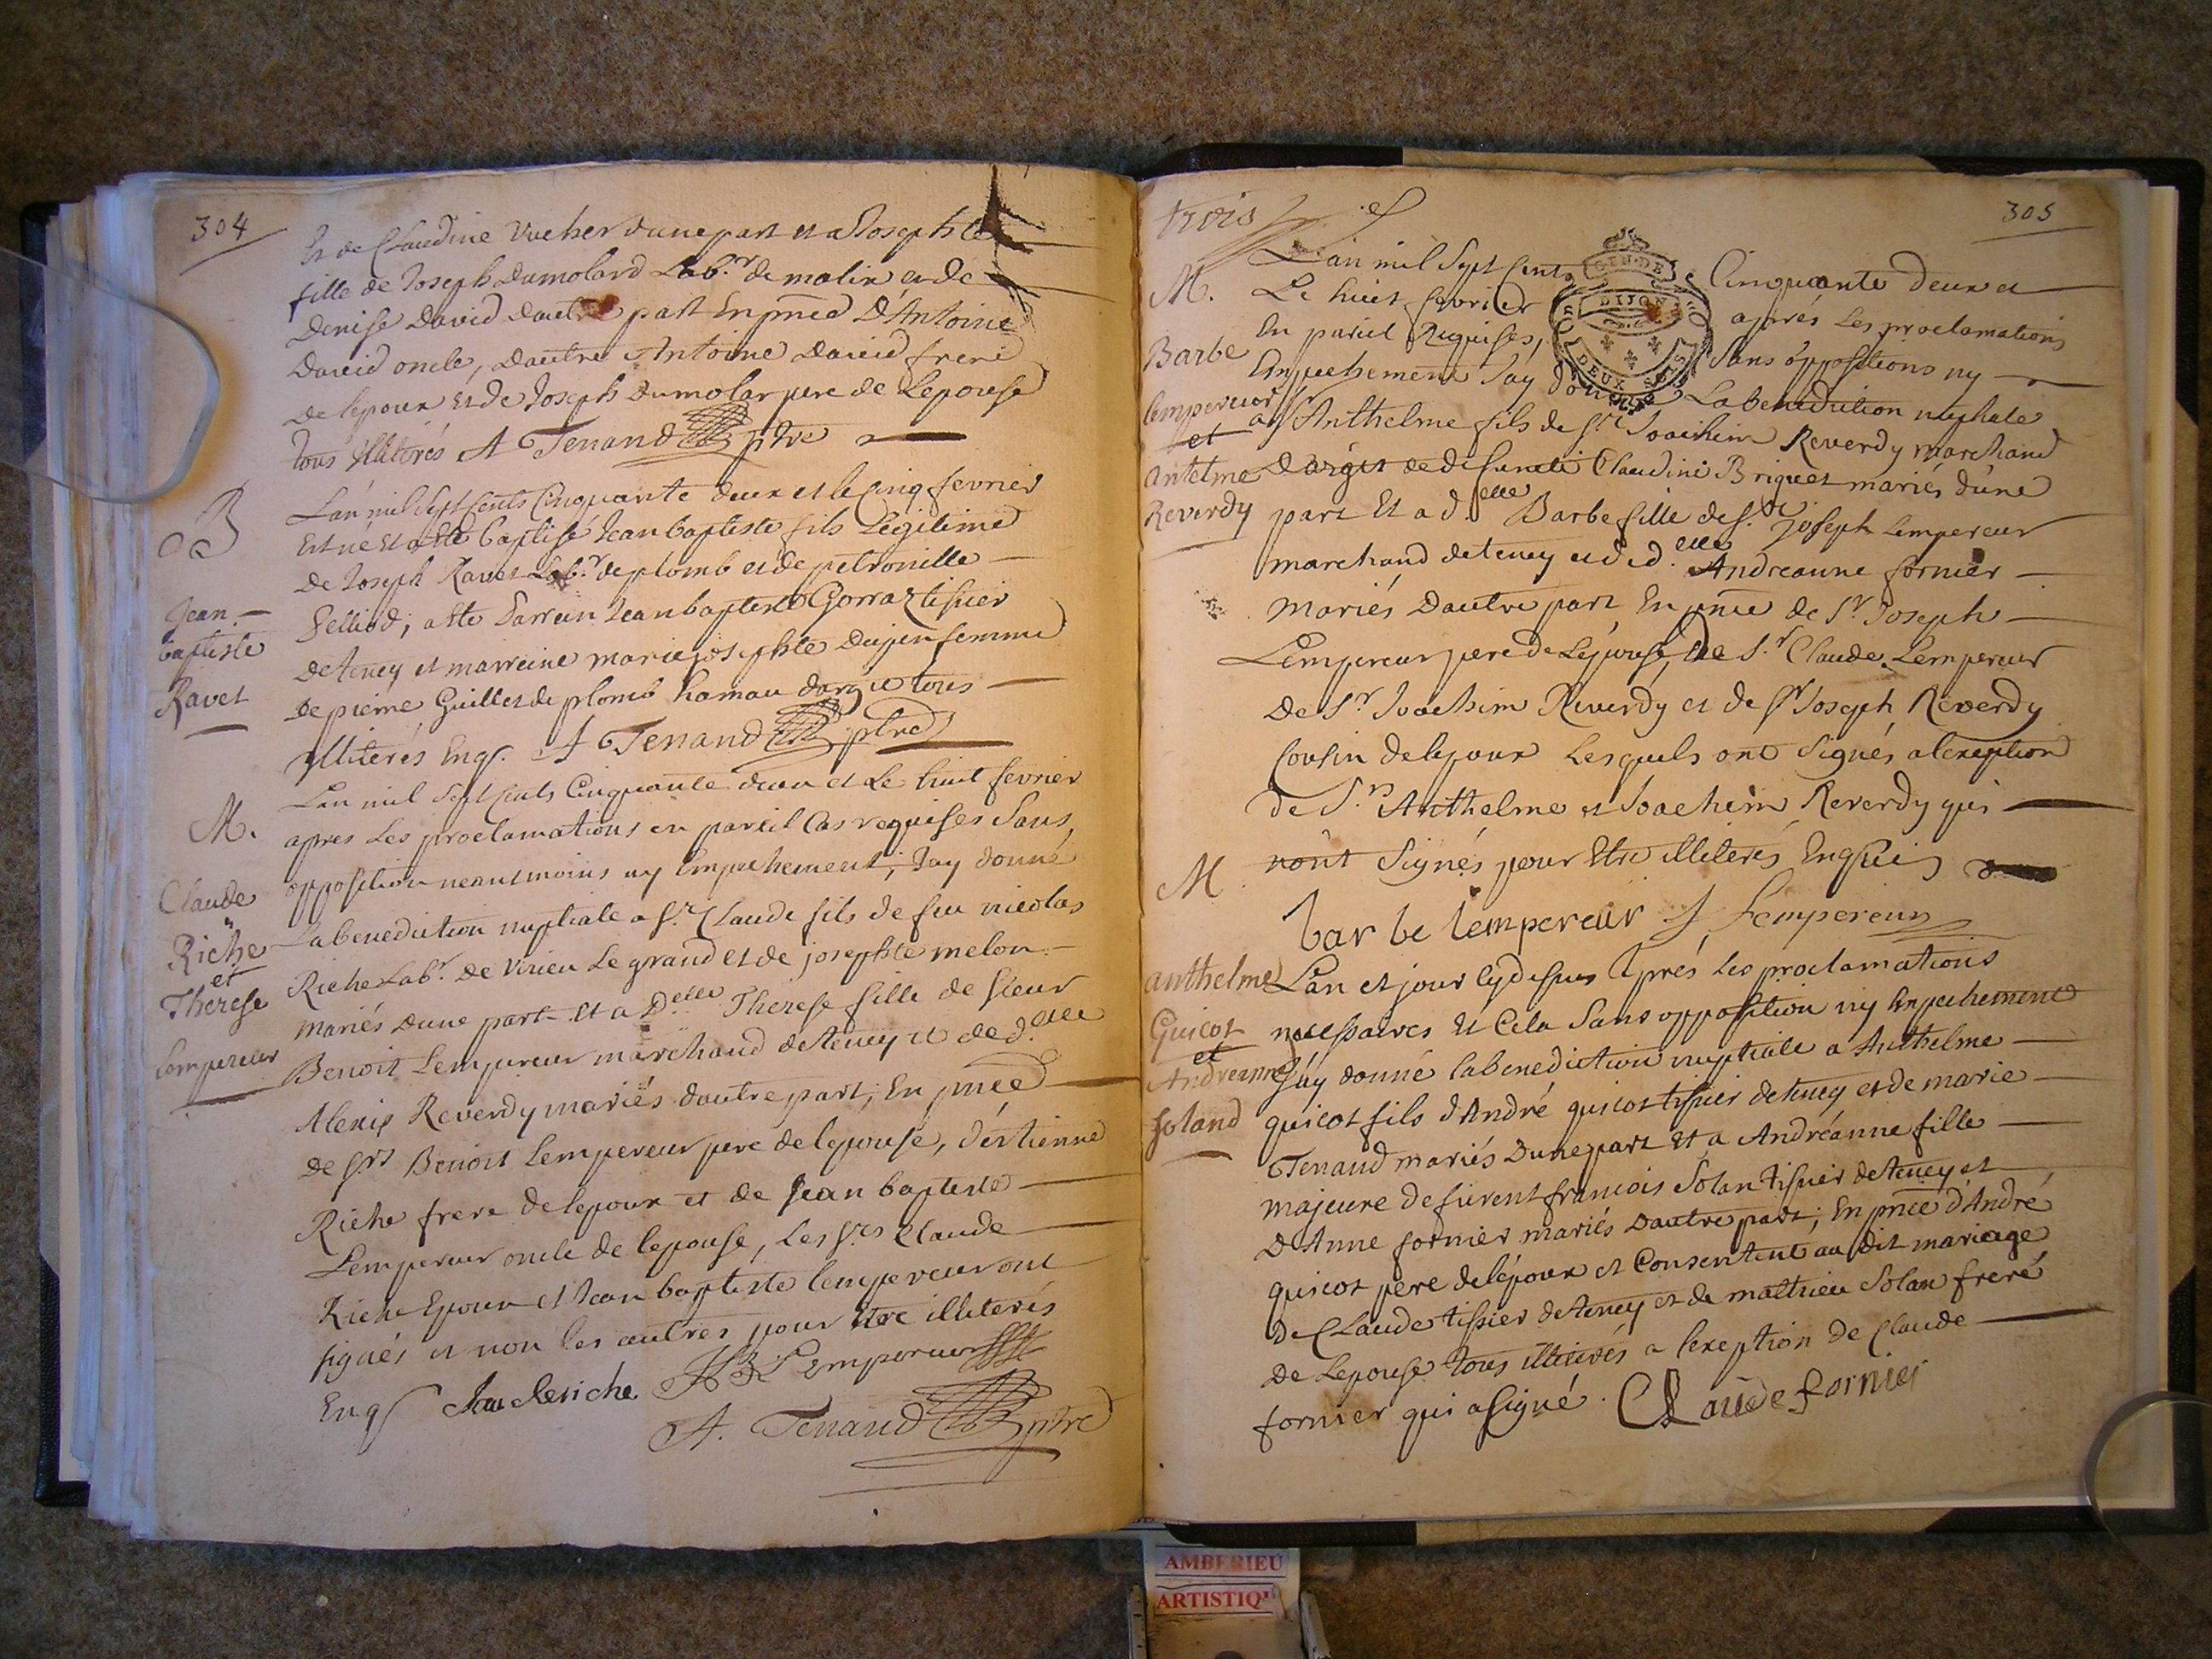 304
Et de Claudine Vucher dune part et a Josephte
fille de Joseph Dumolard Lab.r de molix et de
Denise David dautre part En pnce D'Antoine
David oncle, dautre Antoine David frere
De lepoux et de Joseph Dumolar pere de Lepouse
tous illiterés A Tenand ptre
B
Jean
baptiste
Ravet
L'an mil Sept Cents Cinquante deux et le Cinq fevrier
Est né et a été baptisé Jean baptiste fils Legitime
de Joseph Ravet Lab.r de plomb et de petronille
felliod; a été Parrein Jean baptiste Gorraz tissier
de teney et marreine marie josephte Dujen femme
De pierre Guillet de plomb hamau dargit tous
illiterés Enqs. A Tenand ptre
M.
Claude
Riche
et
Therese
Lempereur
L'an mil Sept Cents Cinquante deux et Le huit fevrier
apres Les proclamations en pareil Cas requises Sans
opposition neantmoins ny Empechement, Jay donné
La benediction nuptiale a S.r Claude fils de feu nicolas
Riche Lab.r De Virieu Le grand et de josephte melon
mariés Dune part Et a Delle Therese fille de Sieur
Benoit Lempereur marchand de teney et de d.elle
Alexis Reverdy mariés dautre part; En pnce
de Srs Benoit Lempereur pere de lepouse, d'estienne
Riche frere de lepoux et de Jean baptiste
Lempereur oncle de lepouse, Les Srs Claude
Riche Epoux et Jean baptiste lempereur ont
signés et non les autres pour Etre illiterés
Enqs Claude riche JB Lempereur
A. Tenand ptre
305
trois
M.
Barbe
lempereur
et
antelme
Reverdy
L'an mil Sept Cents Cinquante deux et
Le huit fevrier aprés Les proclamations
En pareil Requises, Sans oppositions ny
Empechement Jay donné La benediction nuptiale
a Sr Anthelme fils de Sr Joachim Reverdy marchand
Dargit de defuncte Claudine Briguet mariés d'une
part Et a d.elle Barbe fille de S.r Joseph Lempereur
marchand de teney et de d.elle Andreanne fornier
Mariés Dautre part En pnce de S.r Joseph
Lempereur pere de Lépouse, De S.r Claude Lempereur
De S.r Joachim Reverdy et de Sr Joseph Reverdy
Cousin de lepoux Lesquels ont Signés a lexeption
de S.rs Anthelme et Joachim Reverdy qui
nont Signés pour Etre illiterés Enquis
barbe lempereur J Lempereur
M
anthelme
Guicot
et
Andreanne
Soland
L'an et jour cy dessus Aprés Les proclamations
necessaires Et Cela Sans opposition ny Empechement
Jay donné la benediction nuptiale a Anthelme
quicot fils d'André quicot tissier de teney et de marie
Tenand mariés Dune part Et a Andréanne fille
majeure de furent francois Solan tissier de teney et
D'Anne fornier mariés Dautre part; En pnce d'André
quicot pere de lépoux et Consentent au dit mariage
De CLaude tissier de teney et de mathieu Solan freré
De Lepouse tous illiterés a lexeption de Claude
fornier qui a Signé. CLaude fornier
GEN. DE
DIJON
DEUX SOLS
AMBERIEU
ARTISTIQ